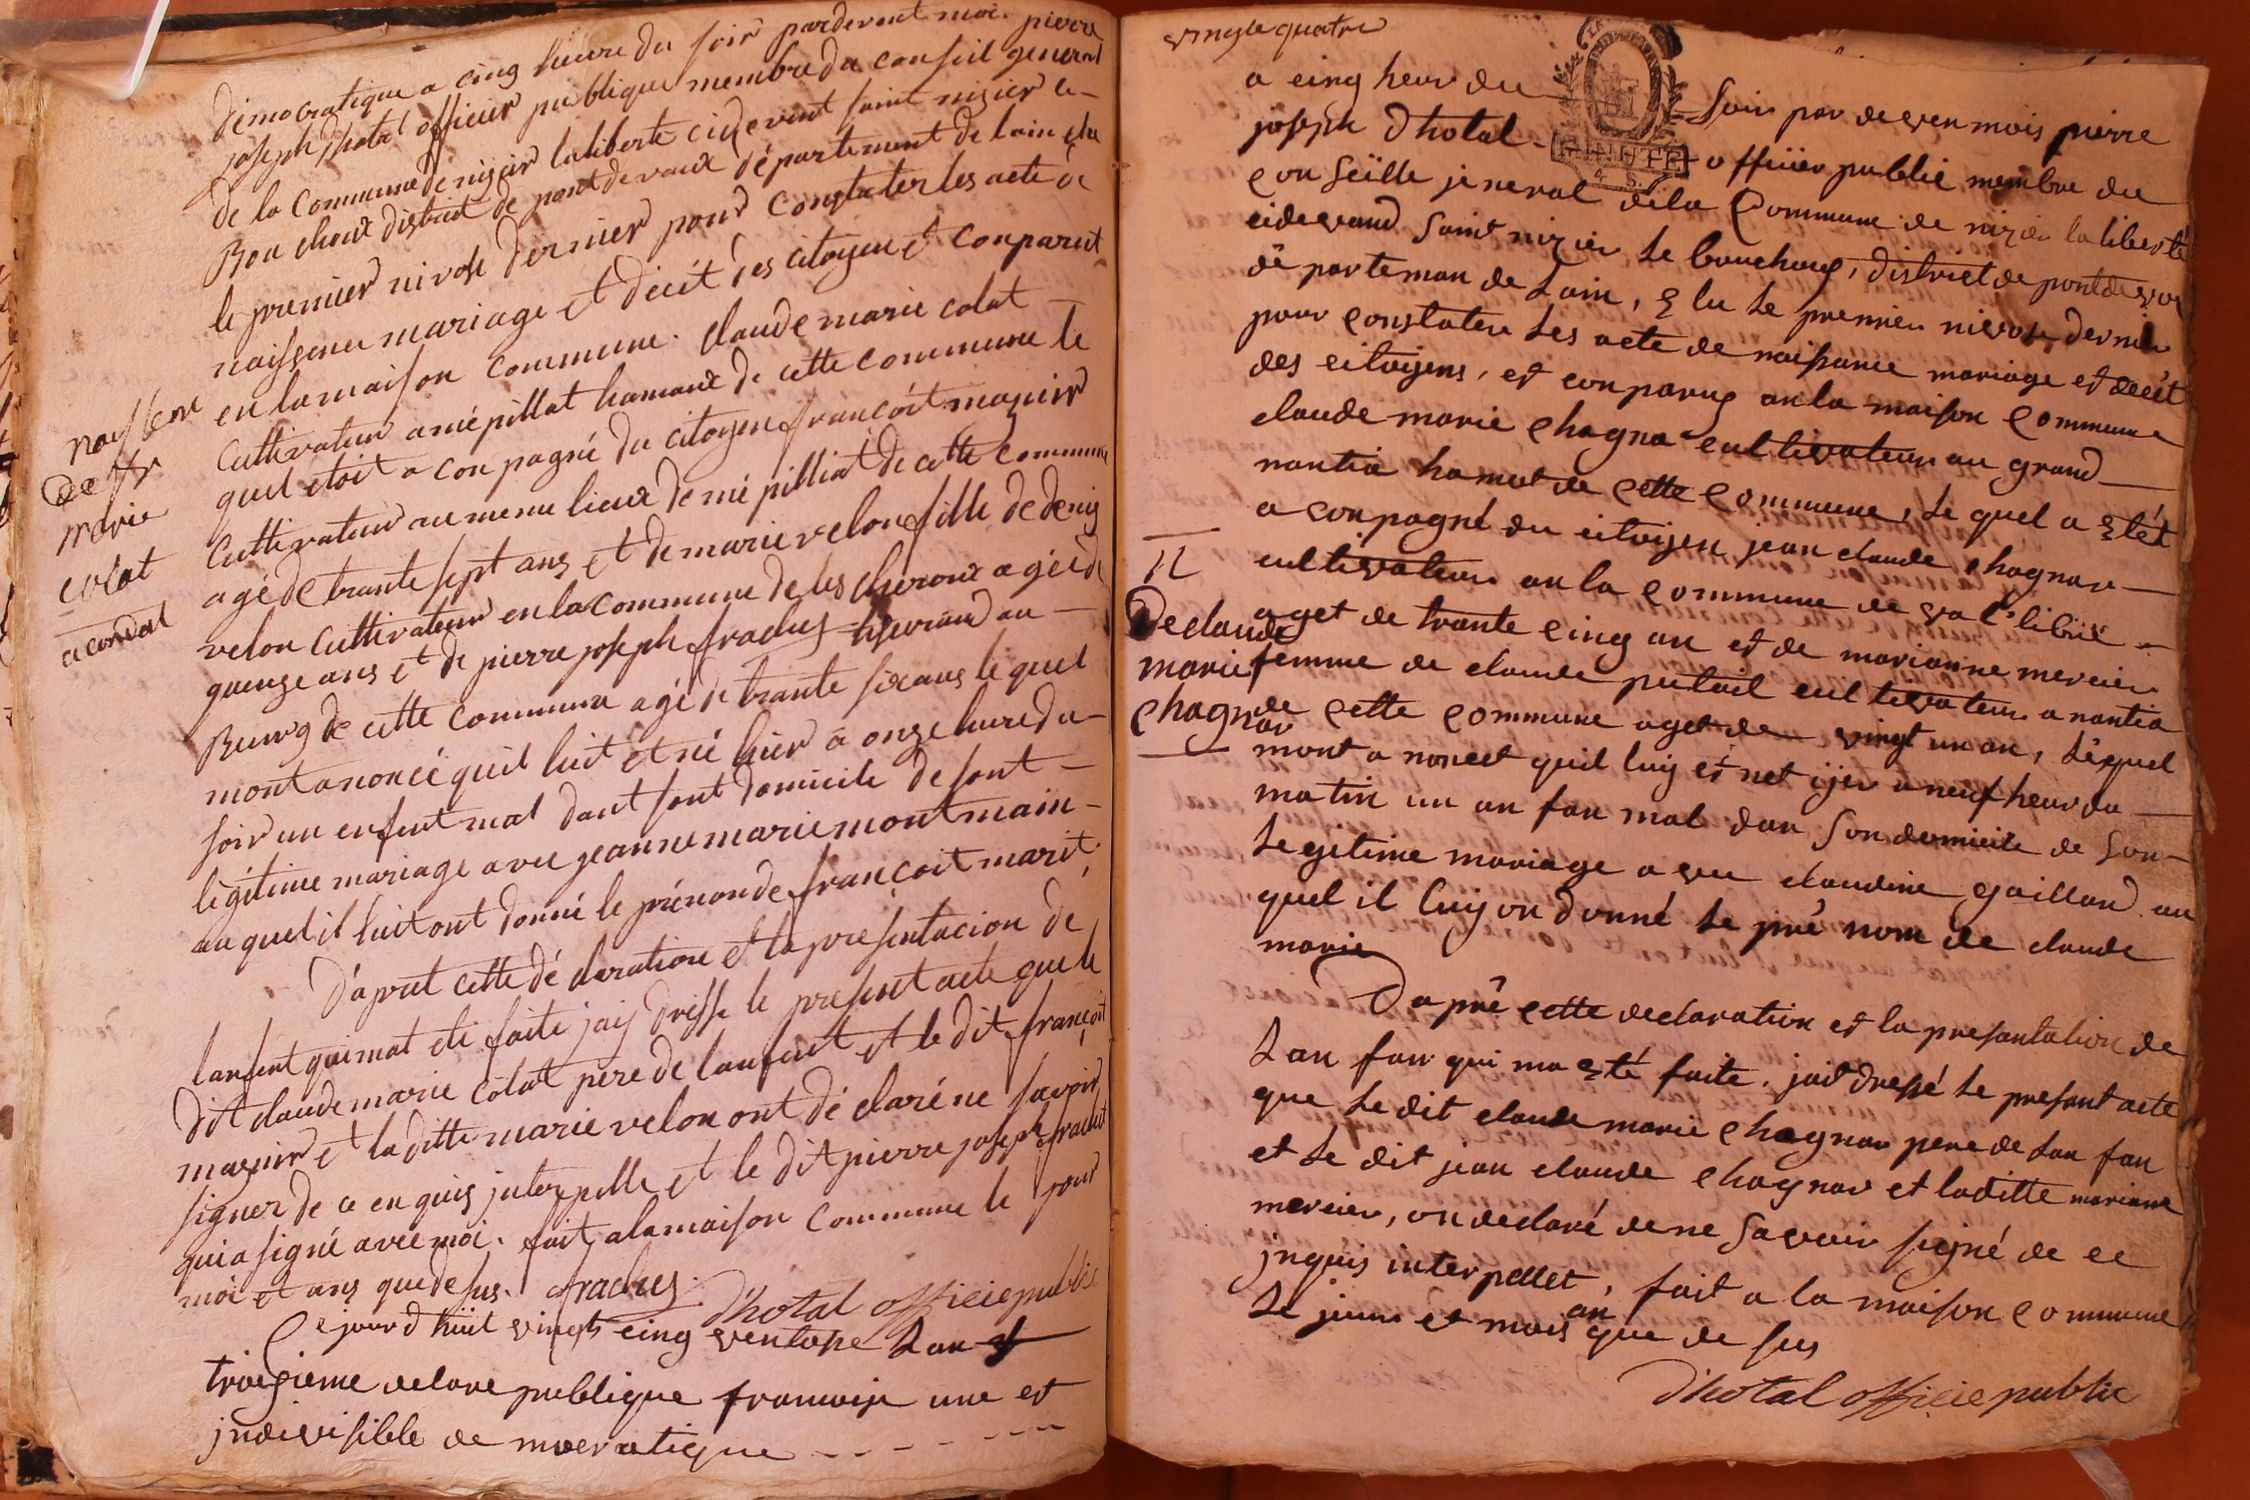 démocratique a cinq heure du soir pardevent moi pierre
joseph dhotal officier publique membre du conseil general
de la commune de nizier la liberte cidevent saint nizier le
Bouchoux district de pont de vaux département de lain elu
le premier nivose dernier pour constater les acte de
naissence mariage et décét des citoyen et conparut
en la maison commune. claude marie colat
cultivateur a mépillat hamaux de cette commune le
quel etoit a conpagné du citoyen françoit mazuir
cultivateur au meme lieux de mépilliat de cette commune
agé de trante sept ans et de marie velon fille de denis
velon cultivateur en la commune de les cheroux agée de
quenze ans et de pierre joseph fradus au
Bourg de cette commune agé de trante six ans le quel
mont anoncé quil luit ét né hier a onze heure du
soir un enfent mal dant sont domicile de sont
légitime mariage avec jeanne marie montmain
au quel il luit ont donné le prénon de françoit marit
D'aprat cette déclaration et la presentacion de
lanfent qui mat eté faite jais dresse le present acte que le
Dit claude marie colat pere de lanfent et le dit françoit
mazuir et la ditte marie velon ont déclaré ne savoir
signer de ce enquis jnterpelle et le dit pierre joseph fradut
qui a signé avec moi. fait a la maison commune le jour
moi et ans que de sus. fradus.
D'hotal officie public
Ce jourd'huit vingts cinq ventose Lan
troizieme de lare publique francoise une et
jndivisible de mocratique
naissence
de fr
marie
colat
a condal
vingte quatre
a cinq heur du soir par de ven mois pierre
joseph Dhotal officier public membre du
conseille jeneral dela Commune de nizier la liberté
cidevand saint nizier le bouchoux, district de pont de vos
dé parteman de Lain, élu le premier nivose dernier
pour constater les acte de naissance mariage et decét
des citoyens, et conparus an la maison commune
claude marie chagnar cultivateur au grand
nantia hamot de cette commune, le quel a étét
a conpagné du citoyen jean claude chagnar
cultivateur an la commune de val libre
aget de trante cinq an et de marianne mercier
femme de claude putail cultivateur a nantia
de cette commune aget de vingt un an, le quel
mont a noncet quil luy et net ijer a neuf heur du
matin un an fan mal dan son domicile de son
Legitime mariage avec claudine gaillard au
quel il luy on donné le pré nom de claude
marie
Da pré cette declaration et la presantation de
Lan fan qui ma été faite. jait dressé le presant acte
que le dit claude marie chagnar pere de lan fan
et le dit jean claude chagnar et laditte mariane
mercier, on declaré de ne savoir signé de ce
jnquis interpellet, fait a la maison commune
le jour et mois an que de sus
D'hotal officie public
N
De claude
marie
chagnar
MINUTE
4 S.